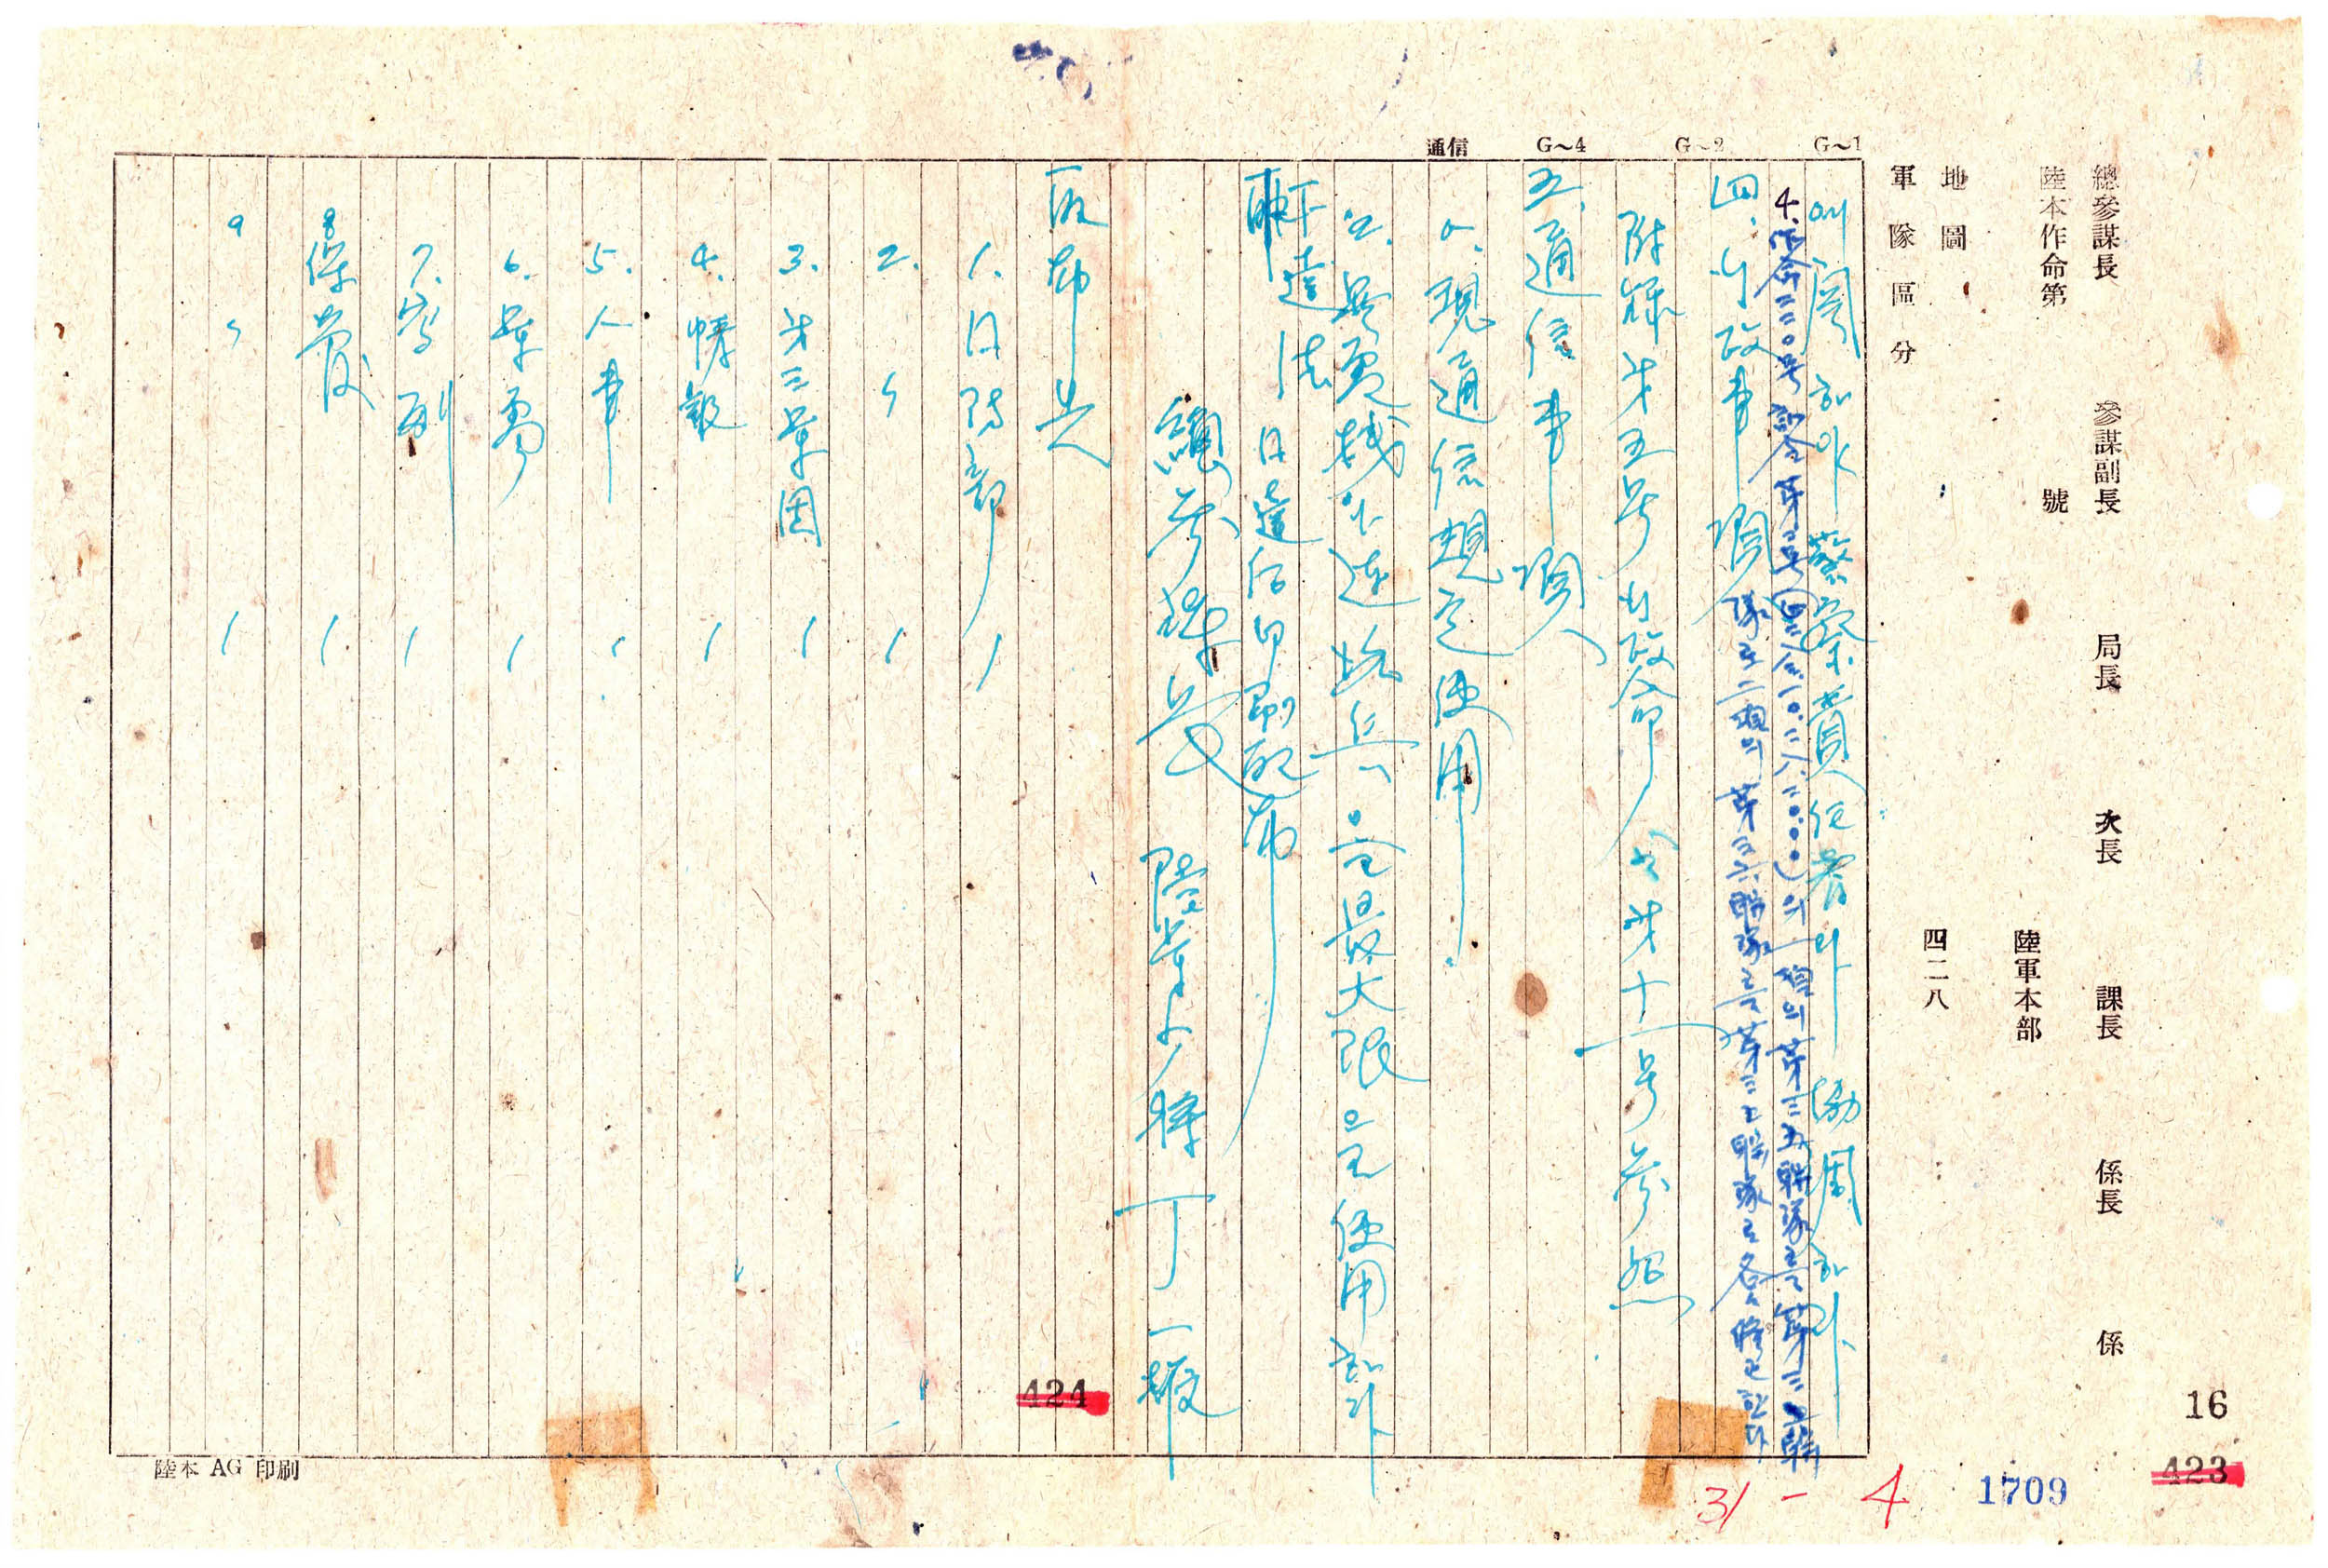 總參謀長 參謀副長 局長 次長 課長 係長 係
陸本作命第 號 陸軍本部
地圖
四二八
軍隊區分
G~1
G~2
G~4
通信
에 關하야 警察責任者와 協調하라
4. 作命二二〇号 訓令第二号 의 一項의 第三五聯隊를 第三三聯
隊로 二項의 第三六聯隊를 第三五聯隊로 各各 한다
四. 行政事項
附錄 第五号 行政命令 第十一号 參照
五. 通信事項
1. 現通信規定使用
2. 無電機 不達 로 傳令兵으로 最大限으로 使用하라
下達法 日達后印刷配布
總參謀長 陸軍少將 丁一權
配布先
1. 日誌部 1
2. 〃 1
3. 第三軍団 1
4. 情報 1
5. 人事 1
6. 軍需 1
7. 高副 1
8. 保管 1
9 〃 1
陸本 AG 印刷
424
423
16
1709
31-4